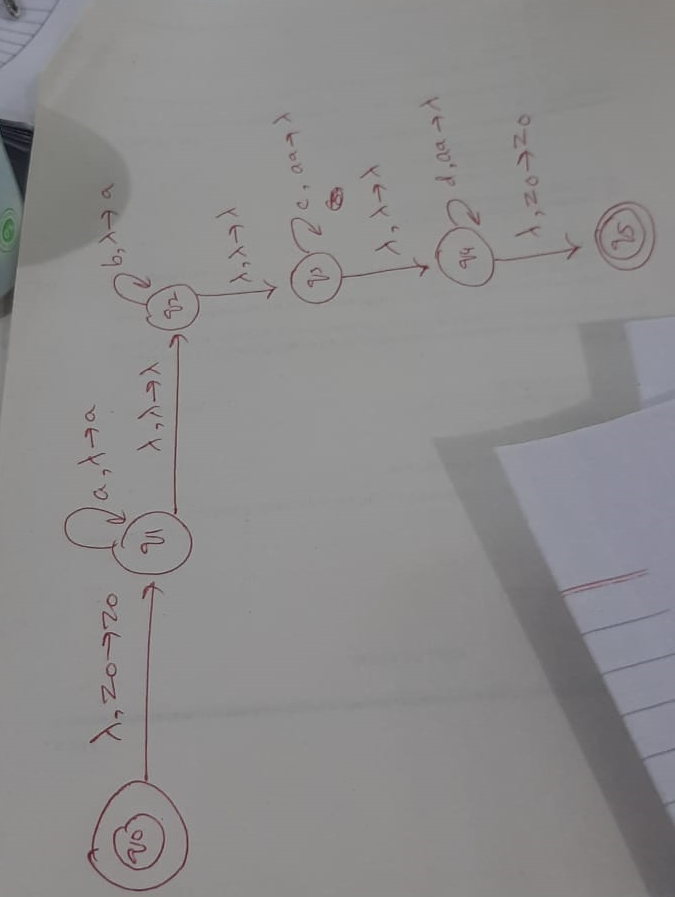 q0
λ, z0→z0
q1
a, λ→a
λ, λ→λ
q2
b, λ→a
λ, λ→λ
q3
c, aa→λ
λ, λ→λ
q4
d, aa→λ
λ, z0→z0
q5